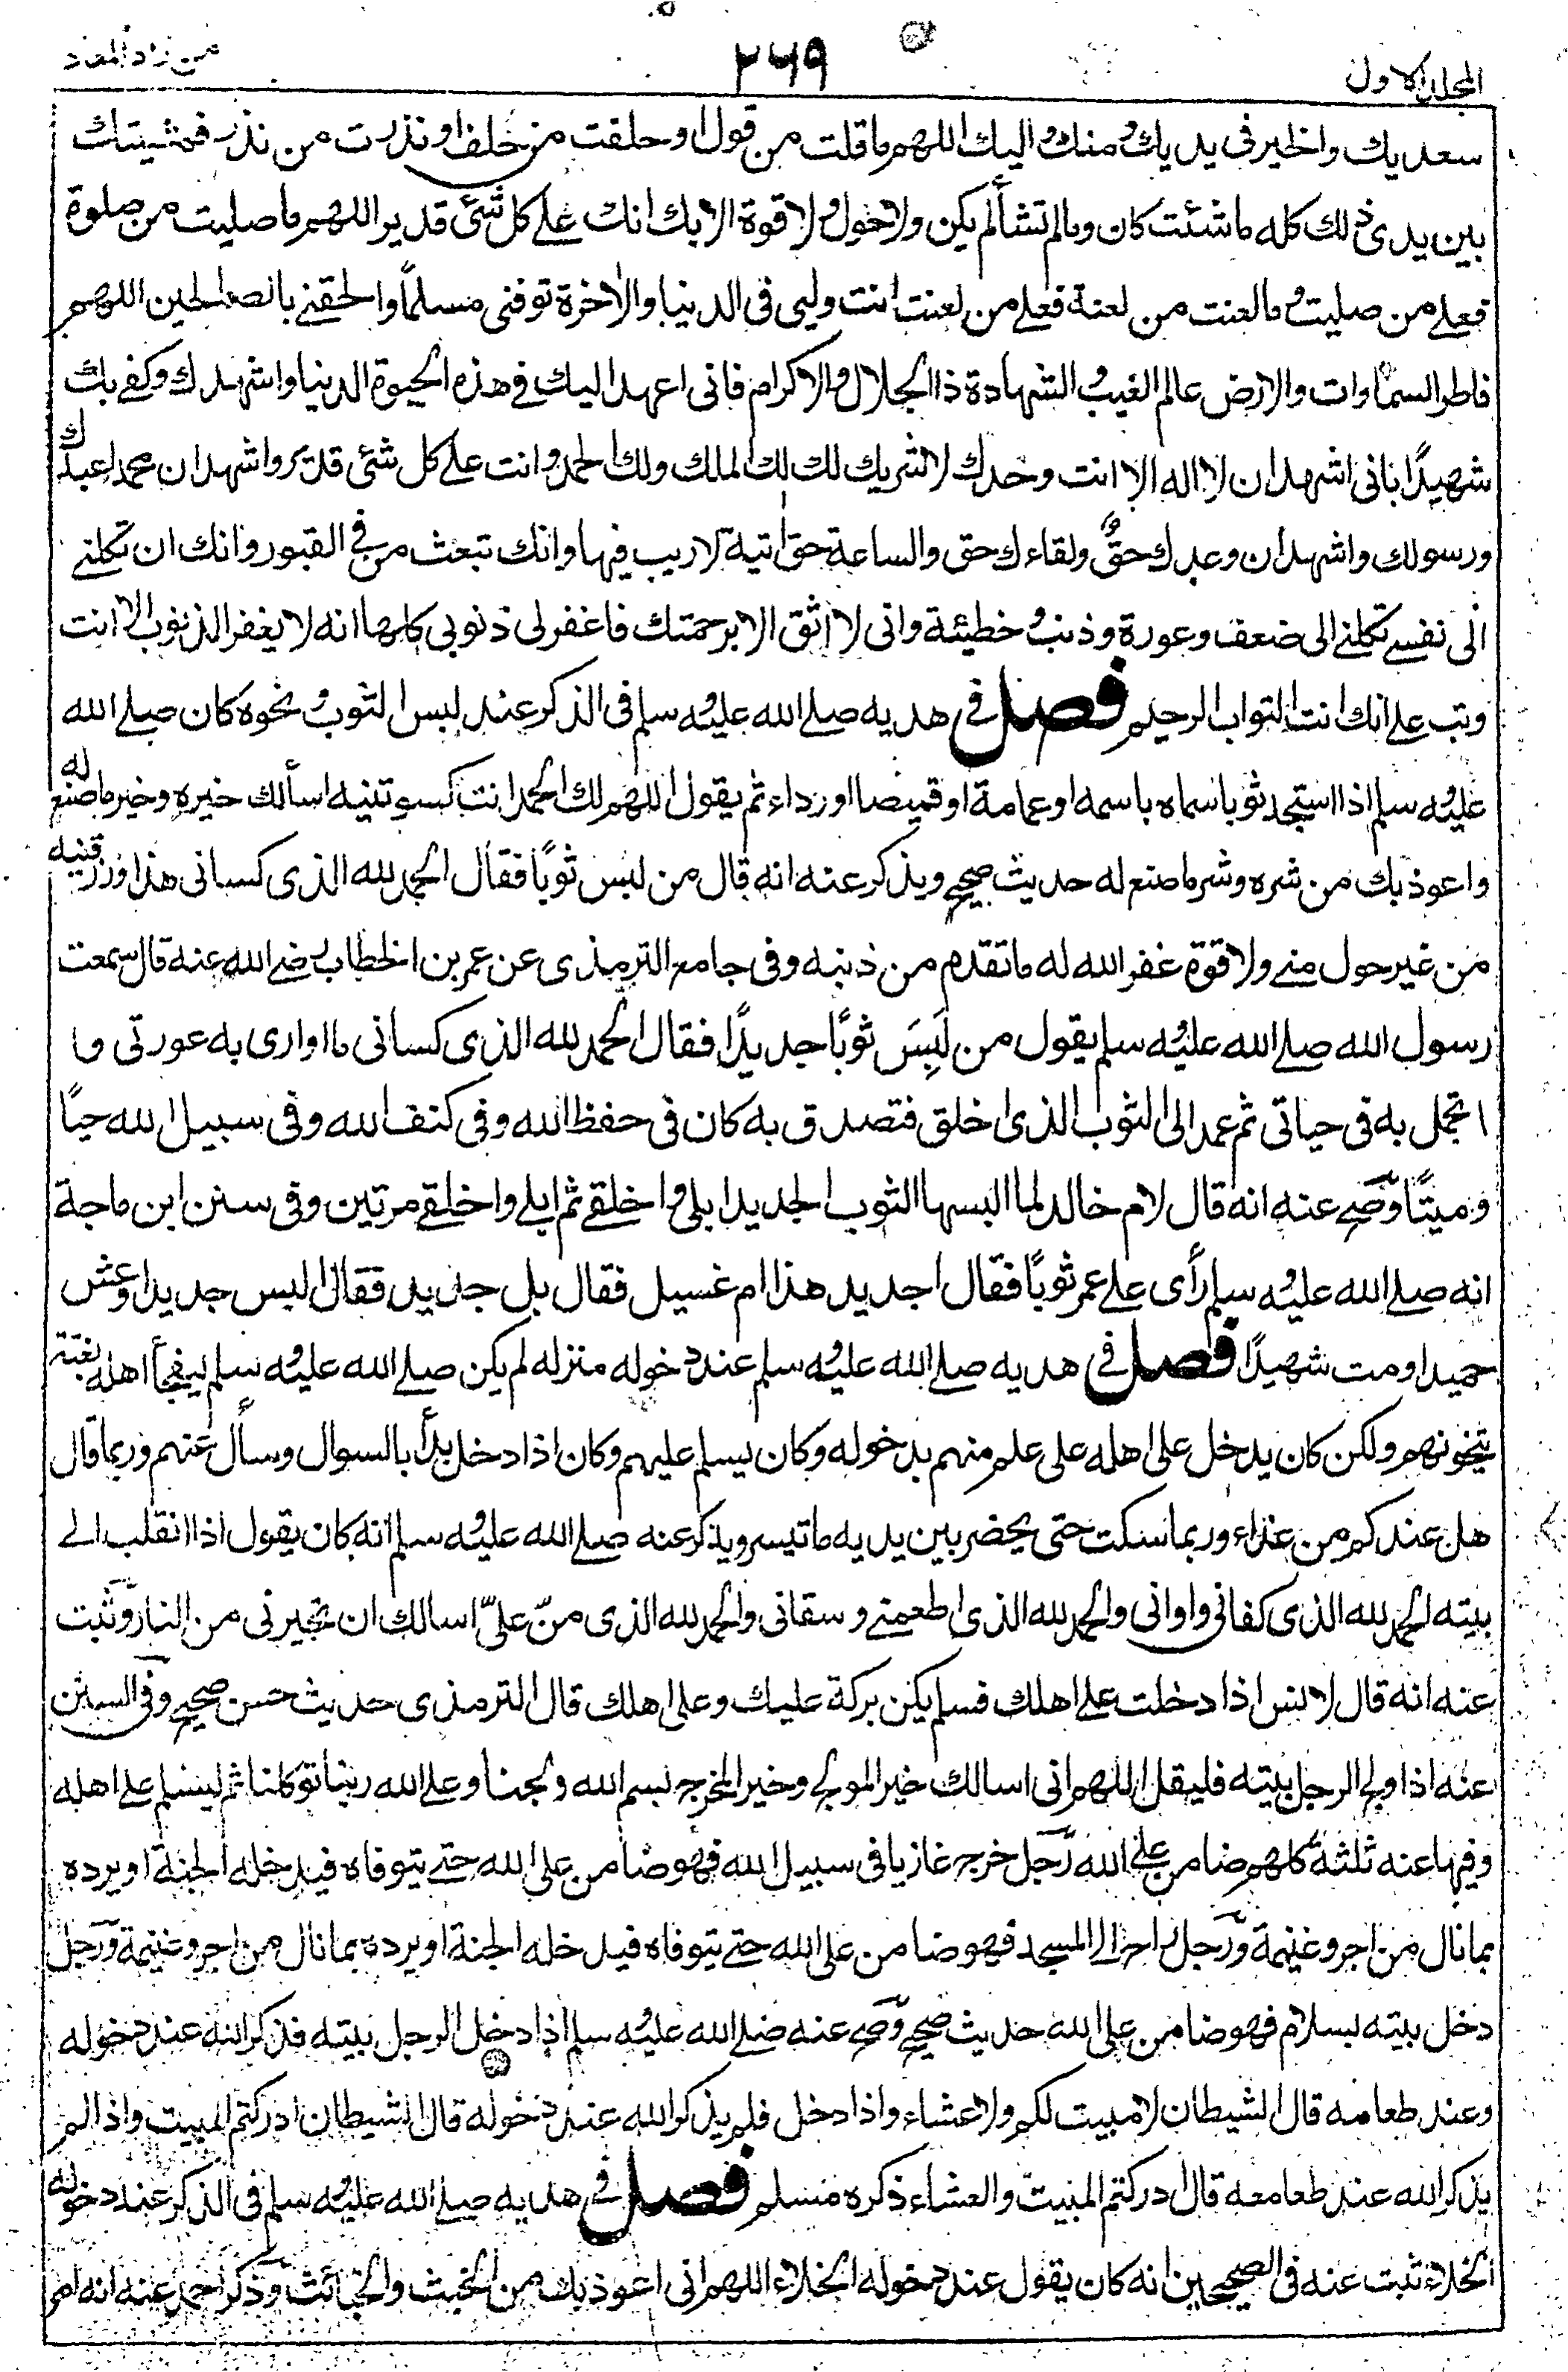 المجلد الاول ٢٦٩ من زاد المعاد
سعديك والخير فى يديك و منك و اليك اللهم ما قلت من قول او حلفت من حلف او نذرت من نذر فمشيتك
بين يدى ذلك كله ما شئت كان وما لم تشألم يكن ولا حول و لا قوة الا بك انك على كل شئ قدير اللهم ما صليت من صلوة
فعلى من صليت و ما لعنت من لعنة فعلى من لعنت انت وليى فى الدنيا والاخرة توفنى مسلماً والحقنى بالصالحين اللهم
فاطر السماوات والارض عالم الغيب و الشهادة ذا الجلال و الاكرام فانى اعهد اليك فى هذه الحيوة الدنيا واشهدك وكفى بك
شهيدًا بانى اشهد ان لا اله الا انت وحدك لا شريك لك لك الملك ولك الحمد وانت على كل شئ قدير واشهد ان محمدا عبدك
ورسولك واشهد ان وعدك حقٌ و لقاءك حق والساعة حق اتية لا ريب فيها وانك تبعث من فى القبور وانك ان تكلنى
الى نفسى تكلنى الى ضعف وعورة وذنب و خطيئة وانى لا اثق الا برحمتك فاغفر لى ذنوبى كلها انه لا يغفر الذنوب الا انت
وتب على انك انت التواب الرحيم فصل فى هديه صلى الله عليه وسلم فى الذكر عند لبس الثوب و نحوه كان صلى الله
عليه وسلم اذا استجد ثوبا سماه باسمه او عمامة او قميصا او رداء ثم يقول اللهم لك الحمد انت كسوتنيه اسألك خيره وخير ما صنع له
واعوذ بك من شره وشر ما صنع له حديث صحيح ويذكر عنه انه قال من لبس ثوبًا فقال الحمد لله الذى كسانى هذا ورزقنيه
من غير حول منى ولا قوة غفر الله له ما تقدم من ذنبه وفى جامع الترمذى عن عمر بن الخطاب رضى الله عنه قال سمعت
رسول الله صلى الله عليه وسلم يقول من لَبِسَ ثوبًا جديدًا فقال الحمد لله الذى كسانى ما اوارى به عورتى وا
اتجمل به فى حياتى ثم عمد الى الثوب الذى اخلق فتصدق به كان فى حفظ الله وفى كنف الله وفى سبيل الله حيًا
وميتًا وصح عنه انه قال لام خالد لما البسها الثوب الجديد ابلى و اخلقى ثم ابلى واخلقى مرتين وفى سنن ابن ماجة
انه صلى الله عليه وسلم رأى على عمر ثوبًا فقال اجديد هذا ام غسيل فقال بل جديد فقال البس جديدا وعش
حميدا ومت شهيدًا فصل فى هديه صلى الله عليه وسلم عند دخوله منزله لم يكن صلى الله عليه وسلم ليفجأ اهله بغتة
يتخونهم ولكن كان يدخل على اهله على علم منهم بدخوله وكان يسلم عليهم وكان اذا دخل بدأ بالسوال وسأل عنهم وربما قال
هل عندكم من غذاء وربما سكت حتى يحضر بين يديه ما تيسر ويذكر عنه صلى الله عليه وسلم انه كان يقول اذا انقلب الى
بيته الحمد لله الذى كفانى واوانى والحمد لله الذى اطعمنى وسقانى والحمد لله الذى منّ علىّ اسالك ان تجيرنى من النار وثبت
عنه انه قال لانس اذا دخلت على اهلك فسلم يكن بركة عليك وعلى اهلك قال الترمذى حديث حسن صحيح وفى السنن
عنه اذا ولج الرجل بيته فليقل اللهم انى اسالك خير المولج وخير المخرج بسم الله ولجنا وعلى الله ربنا توكلنا ثم ليسلم على اهله
وفيها عنه ثلثة كلهم ضامن على الله رجل خرج غازيا فى سبيل الله فهو ضامن على الله حتى يتوفاه فيدخله الجنة او يرده
بما نال من اجر وغنيمة ورجل راح الى المسجد فهو ضامن على الله حتى يتوفاه فيدخله الجنة او يرده بما نال من اجر وغنيمة ورجل
دخل بيته بسلام فهو ضامن على الله حديث صحيح وصح عنه صلى الله عليه وسلم اذا دخل الرجل بيته فذكر الله عند دخوله
وعند طعامه قال الشيطان لا مبيت لكم ولا عشاء واذا دخل فلم يذكر الله عند دخوله قال الشيطان ادركتم المبيت واذا لم
يذكر الله عند طعامعه قال ادركتم المبيت والعشاء ذكره مسلم فصل فى هديه صلى الله عليه وسلم فى الذكر عند دخوله
الخلاء ثبت عنه فى الصحيحين انه كان يقول عند دخوله الخلاء اللهم انى اعوذ بك من الخبث والخبائث وذكر احمد عنه انه امر